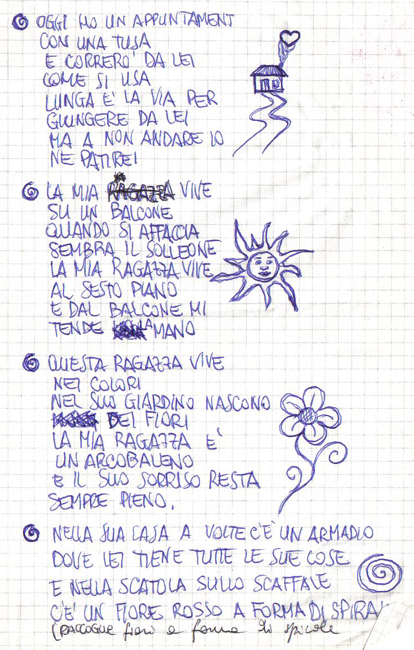 OGGI HO UN APPUNTAMENT
CON UNA TUSA
E CORRERO' DA LEI
COME SI USA
LUNGA E' LA VIA PER
GIUNGERE DA LEI
MA A NON ANDARE IO
NE PATIREI
LA MIA RAGAZZA VIVE
SU UN BALCONE
QUANDO SI AFFACCIA
SEMBRA IL SOLLEONE
LA MIA RAGAZZA VIVE
AL SESTO PIANO
E DAL BALCONE MI
TENDE LA MANO
QUESTA RAGAZZA VIVE
NEI COLORI
NEL SUO GIARDINO NASCONO
DEI FIORI
LA MIA RAGAZZA E'
UN ARCOBALENO
E IL SUO SORRISO RESTA
SEMPRE PIENO.
NELLA SUA CASA A VOLTE C'È UN ARMADIO
DOVE LEI TIENE TUTTE LE SUE COSE
E NELLA SCATOLA SULLO SCAFFALE
C'È UN FIORE ROSSO A FORMA DI SPIRAL
(RACCOGLIE fiori a forma di